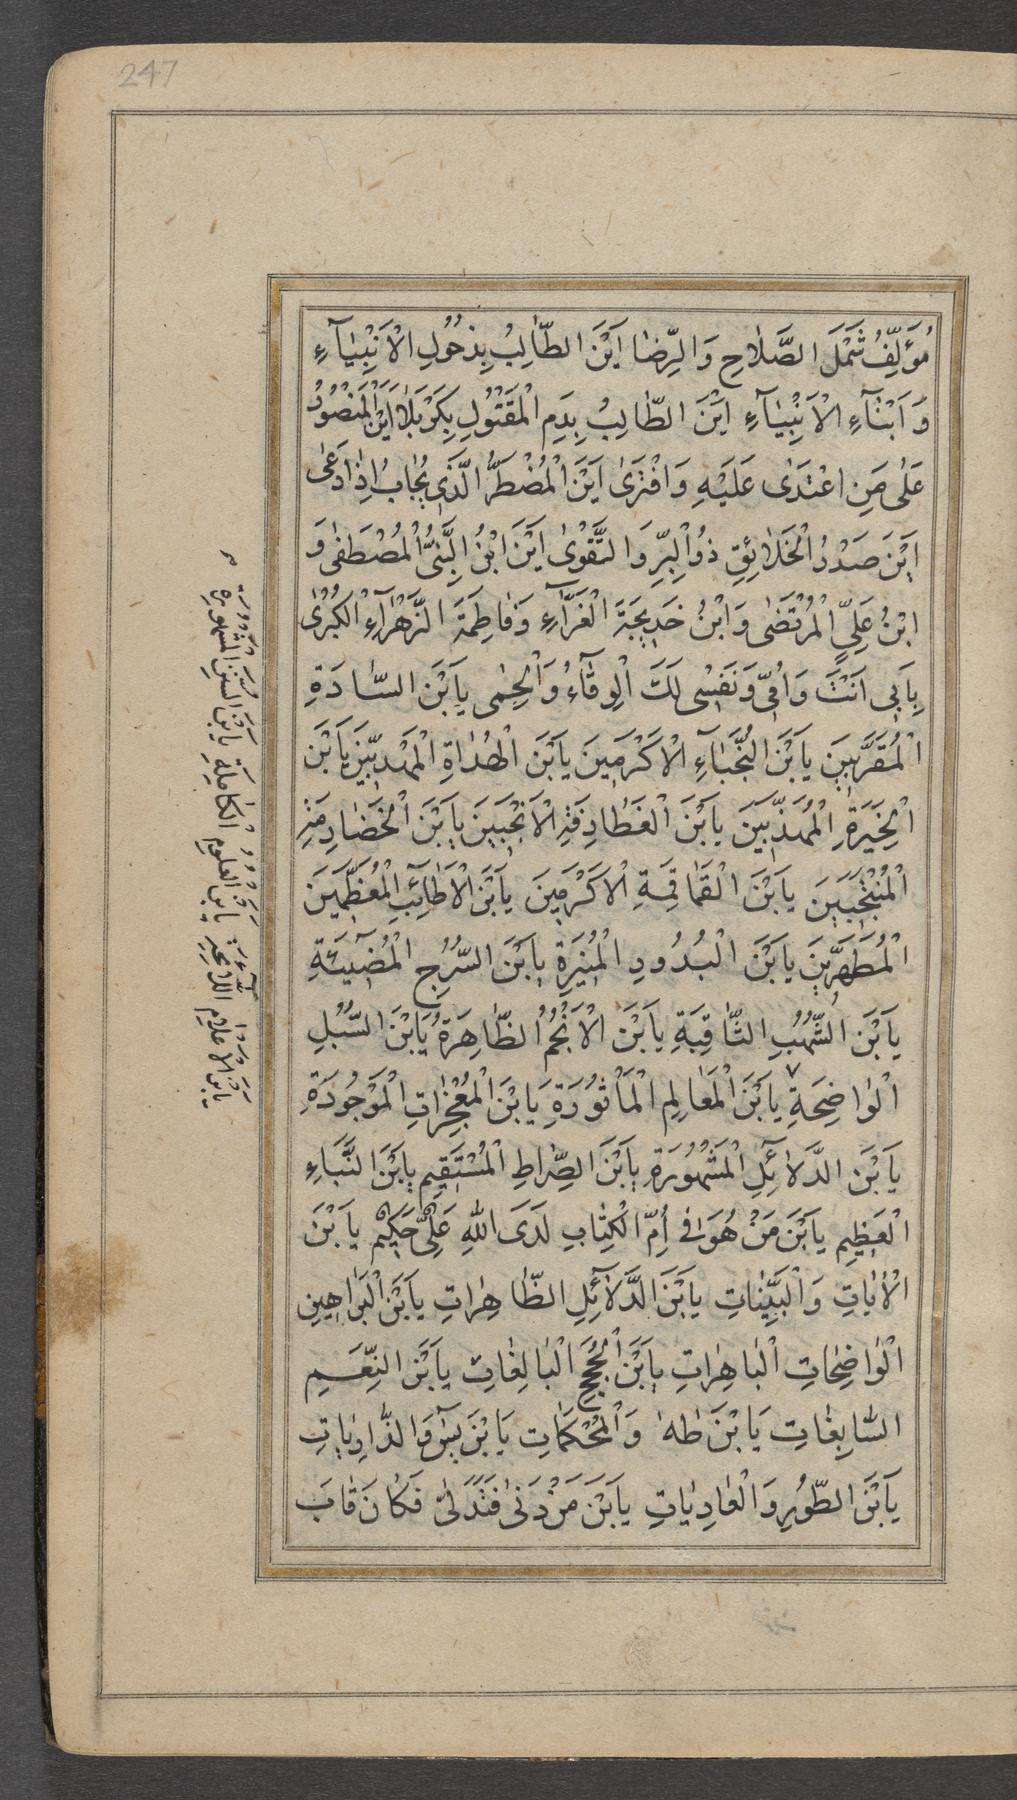 247
مُؤَلِّفُ شَمْلَ الصَّلٰاحِ وَالرِّضٰا اَيْنَ الطّٰالِبُ بِذُحُولِ الْاَنْبِيٰآءِ
وَ اَبْنٰآءِ الْاَنْبِيٰآءِ اَيْنَ الطّٰالِبُ بِدَمِ الْمَقْتُولِ بِكَرْبَلٰا اَيْنَ الْمَنْصُورُ
عَلٰى مَنِ اعْتَدٰى عَلَيْهِ وَ افْتَرٰى اَيْنَ الْمُضْطَرُّ الَّذى يُجٰابُ اِذٰا دَعٰى
اَيْنَ صَدْرُ الْخَلٰائِقِ ذُو الْبِرِّ وَ التَّقْوٰى اَيْنَ ابْنُ النَّبِىِّ الْمُصْطَفٰى وَ
ابْنُ عَلِىٍّ الْمُرْتَضٰى وَ ابْنُ خَديجَةَ الْغَرّٰآءِ وَ فٰاطِمَةَ الزَّهْرٰآءِ الْكُبْرٰى
بِاَبى اَنْتَ وَ اُمّى وَ نَفْسى لَكَ الْوِقٰآءُ وَ الْحِمٰى يَابْنَ السّٰادَةِ
الْمُقَرَّبينَ يَابْنَ النُّجَبٰآءِ الْاَكْرَمينَ يَابْنَ الْهُدٰاةِ الْمَهْدِيّينَ يَابْنَ
الْخِيَرَةِ الْمُهَذَّبينَ يَابْنَ الْغَطٰارِفَةِ الْاَنْجَبينَ يَابْنَ الْخَضٰارِمَةِ
الْمُنْتَجَبينَ يَابْنَ الْقَمٰاقِمَةِ الْاَكْرَمينَ يَابْنَ الْاَطٰائِبِ الْمُعَظَّمينَ
الْمُطَهَّرينَ يَابْنَ الْبُدُورِ الْمُنيرَةِ يَابْنَ السُّرُجِ الْمُضيئَةِ
يَابْنَ الشُّهُبِ الثّٰاقِبَةِ يَابْنَ الْاَنْجُمِ الظّٰاهِرَةِ يَابْنَ السُّبُلِ
الْوٰاضِحَةِ يَابْنَ الْمَعٰالِمِ الْمَأْثُورَةِ يَابْنَ الْمُعْجِزٰاتِ الْمَوْجُودَةِ
يَابْنَ الدَّلٰائِلِ الْمَشْهُورَةِ يَابْنَ الصِّرٰاطِ الْمُسْتَقيمِ يَابْنَ النَّبَاءِ
الْعَظيمِ يَابْنَ مَنْ هُوَ فى اُمِّ الْكِتٰابِ لَدَى اللهِ عَلِىٌّ حَكيمٌ يَابْنَ
الْاٰيٰاتِ وَ الْبَيِّنٰاتِ يَابْنَ الدَّلٰائِلِ الظّٰاهِرٰاتِ يَابْنَ الْبَرٰاهينِ
الْوٰاضِحٰاتِ الْبٰاهِرٰاتِ يَابْنَ الْحُجَجِ الْبٰالِغٰاتِ يَابْنَ النِّعَمِ
السّٰابِغٰاتِ يَابْنَ طٰهٰ وَ الْمُحْكَمٰاتِ يَابْنَ يٰسٓ وَ الذّٰارِيٰاتِ
يَابْنَ الطُّورِ وَ الْعٰادِيٰاتِ يَابْنَ مَنْ دَنٰى فَتَدَلّٰى فَكٰانَ قٰابَ
يابن الاعلام اللائحةِ يابن العلوم الكاملةِ يابن السنن المشهورة